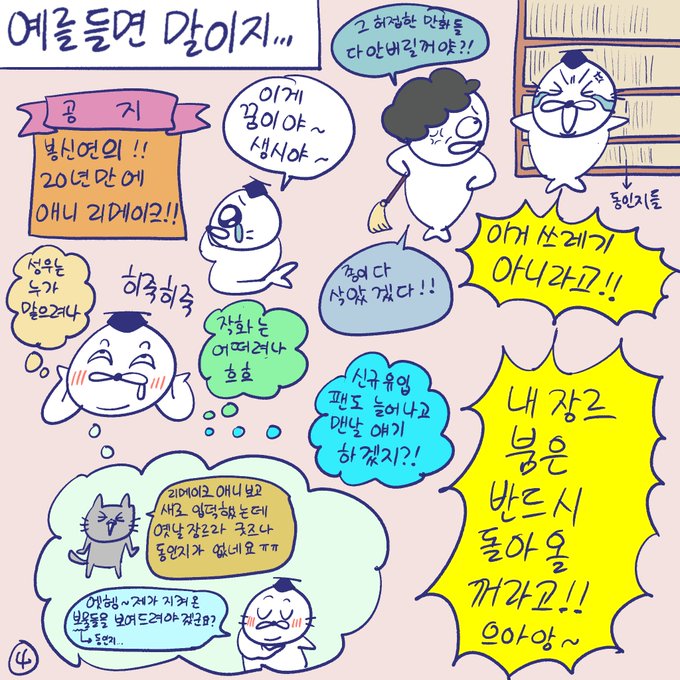 예를들면 말이지...
그 허접한 만화들
다 안버릴꺼야?!
이게
꿈이야~
생시야~
공지
봉신연의!!
20년만에
애니 리메이크!!
동인지들
이거 쓰레기
아니라고!!
종이 다
삭았겠다!!
성우는
누가
맡으려나
히죽히죽
작화는
어떠려나
흐흐
신규유입
팬도 늘어나고
맨날 얘기
하겠지?!
내 장르
붐은
반드시
돌아올
꺼라고!!
으아앙~
리메이크 애니 보고
새로 입덕했는데
옛날장르라 굿즈나
동인지가 없네요ㅠㅠ
엣헴~ 제가 지켜온
보물들을 보여드려야겠군요?
동인지..
4